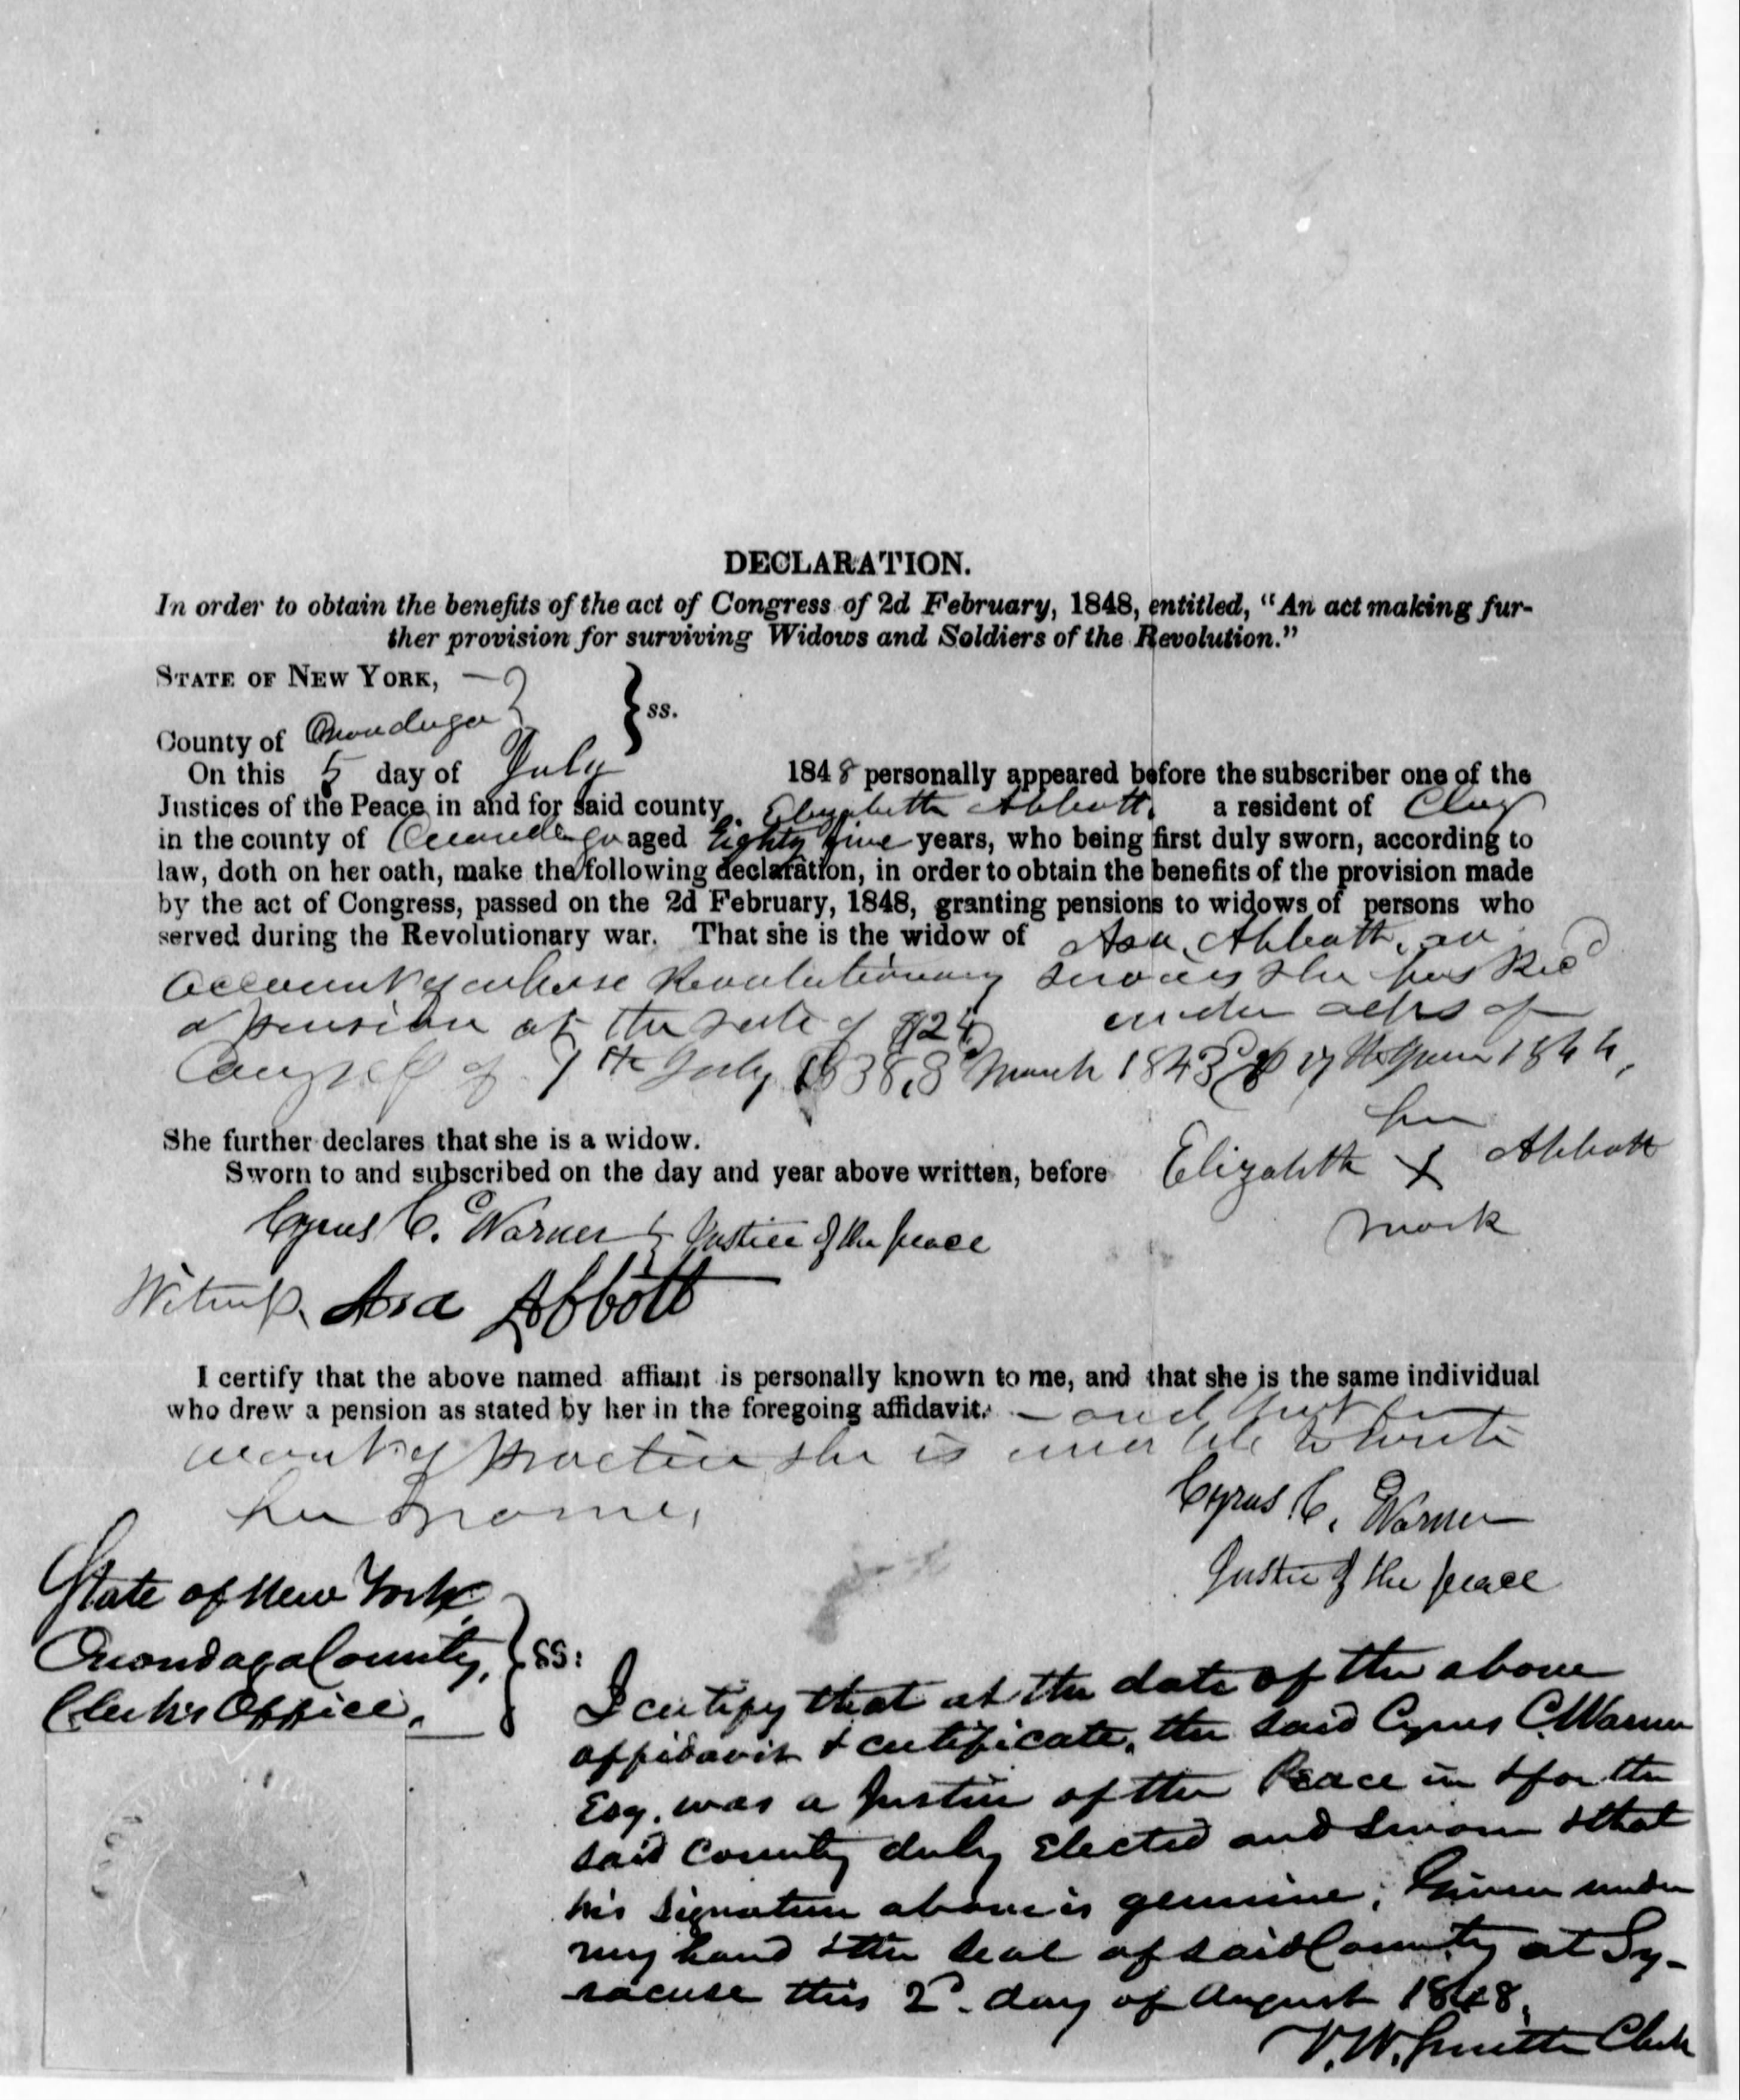 DECLARATION.
In order to obtain the benefits of the act of Congress of 2d February, 1848, entitled, "An act making fur-
ther provision for surviving Widows and Soldiers of the Revolution."
STATE OF NEW YORK,
County of Onondaga } ss.
On this 5 day of July 1848 personally appeared before the subscriber one of the
Justices of the Peace in and for said county, Elizabeth Abbott, a resident of Clay
in the county of Onondaga aged Eighty five years, who being first duly sworn, according to
law, doth on her oath, make the following declaration, in order to obtain the benefits of the provision made
by the act of Congress, passed on the 2d February, 1848, granting pensions to widows of persons who
served during the Revolutionary war. That she is the widow of Asa Abbott, on
account of whose Revolutionary services she has Recd
a pension at the rate of $24 under acts of
Congress of 7th July 1838, 3d March 1843 & 17th June 1844,
She further declares that she is a widow.
her
Elizabeth X Abbott
mark
Sworn to and subscribed on the day and year above written, before
Cyrus C. Warner Justice of the peace
Witness Asa Abbott
I certify that the above named affiant is personally known to me, and that she is the same individual
who drew a pension as stated by her in the foregoing affidavit. — and that for
want of practice she is unable to write
her name,
Cyrus C. Warner
Justice of the peace
State of New York,
Onondaga County, } ss:
Clerk's Office.
I certify that at the date of the above
affidavit & certificate, the said Cyrus C. Warner
Esq. was a Justice of the Peace in & for the
said County duly Elected and Sworn & that
his signature above is genuine; Given under
my hand & the seal of said County at Sy-
racuse this 2d. day of August 1848.
V. W. Smith Clerk